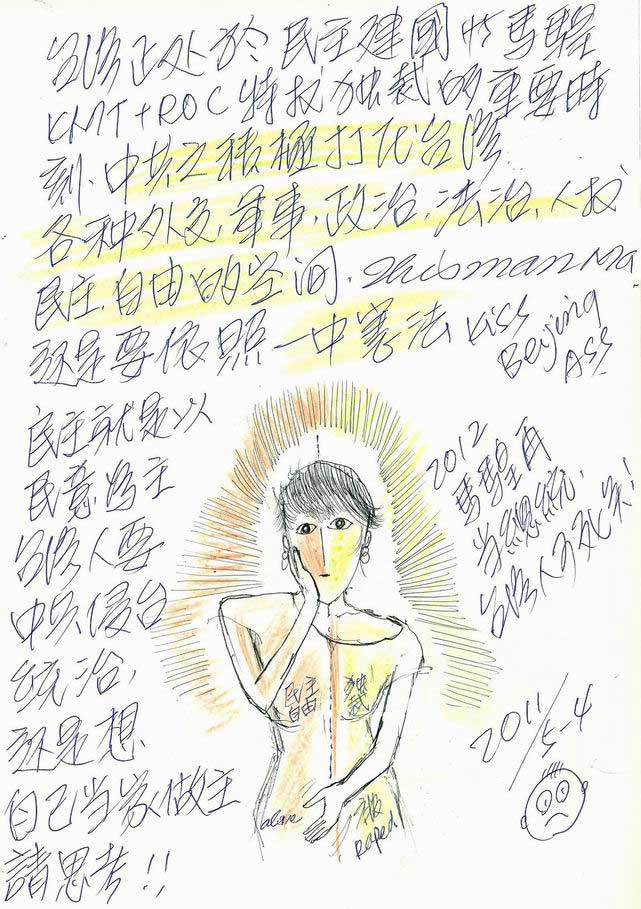 台湾正处於民主建國馬騜
KMT+ROC特权独裁的重要時
刻、中共正積極打压台湾
各种外交,軍事,政治,法治,人权
民主,自由的空间, Ma
还是要依照一中憲法 Kiss
Beijing
Ass
民主就是以
民意為主
台湾人要
中共侵台
統治,
还是想
自己当家做主
請思考!!
2012
馬騜再
当總統,
台湾人
民主
自由
独
裁
Raped
2011/5-4